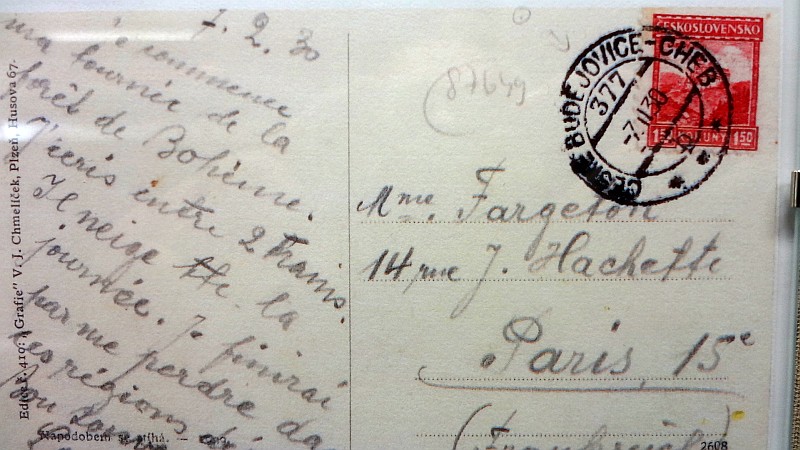 7.2.30
commence
tournée de la
forêt de Bohème.
J'écris entre 2 trains.
Il neige tte la
journée. Je finirai
par me perdre da
les régions
Edice č. 410: "Grafie" V. J. Chmelíček, Plzeň, Husova 67.
Napodobení se stíhá. —
87649
ČESKÉ BUDĚJOVICE-CHEB
377
7.II.30
ČESKOSLOVENSKO
1.50 KORUNY 1.50
Mme Fargeton
14 rue J. Hachette
Paris, 15e
(Frankreich
2608